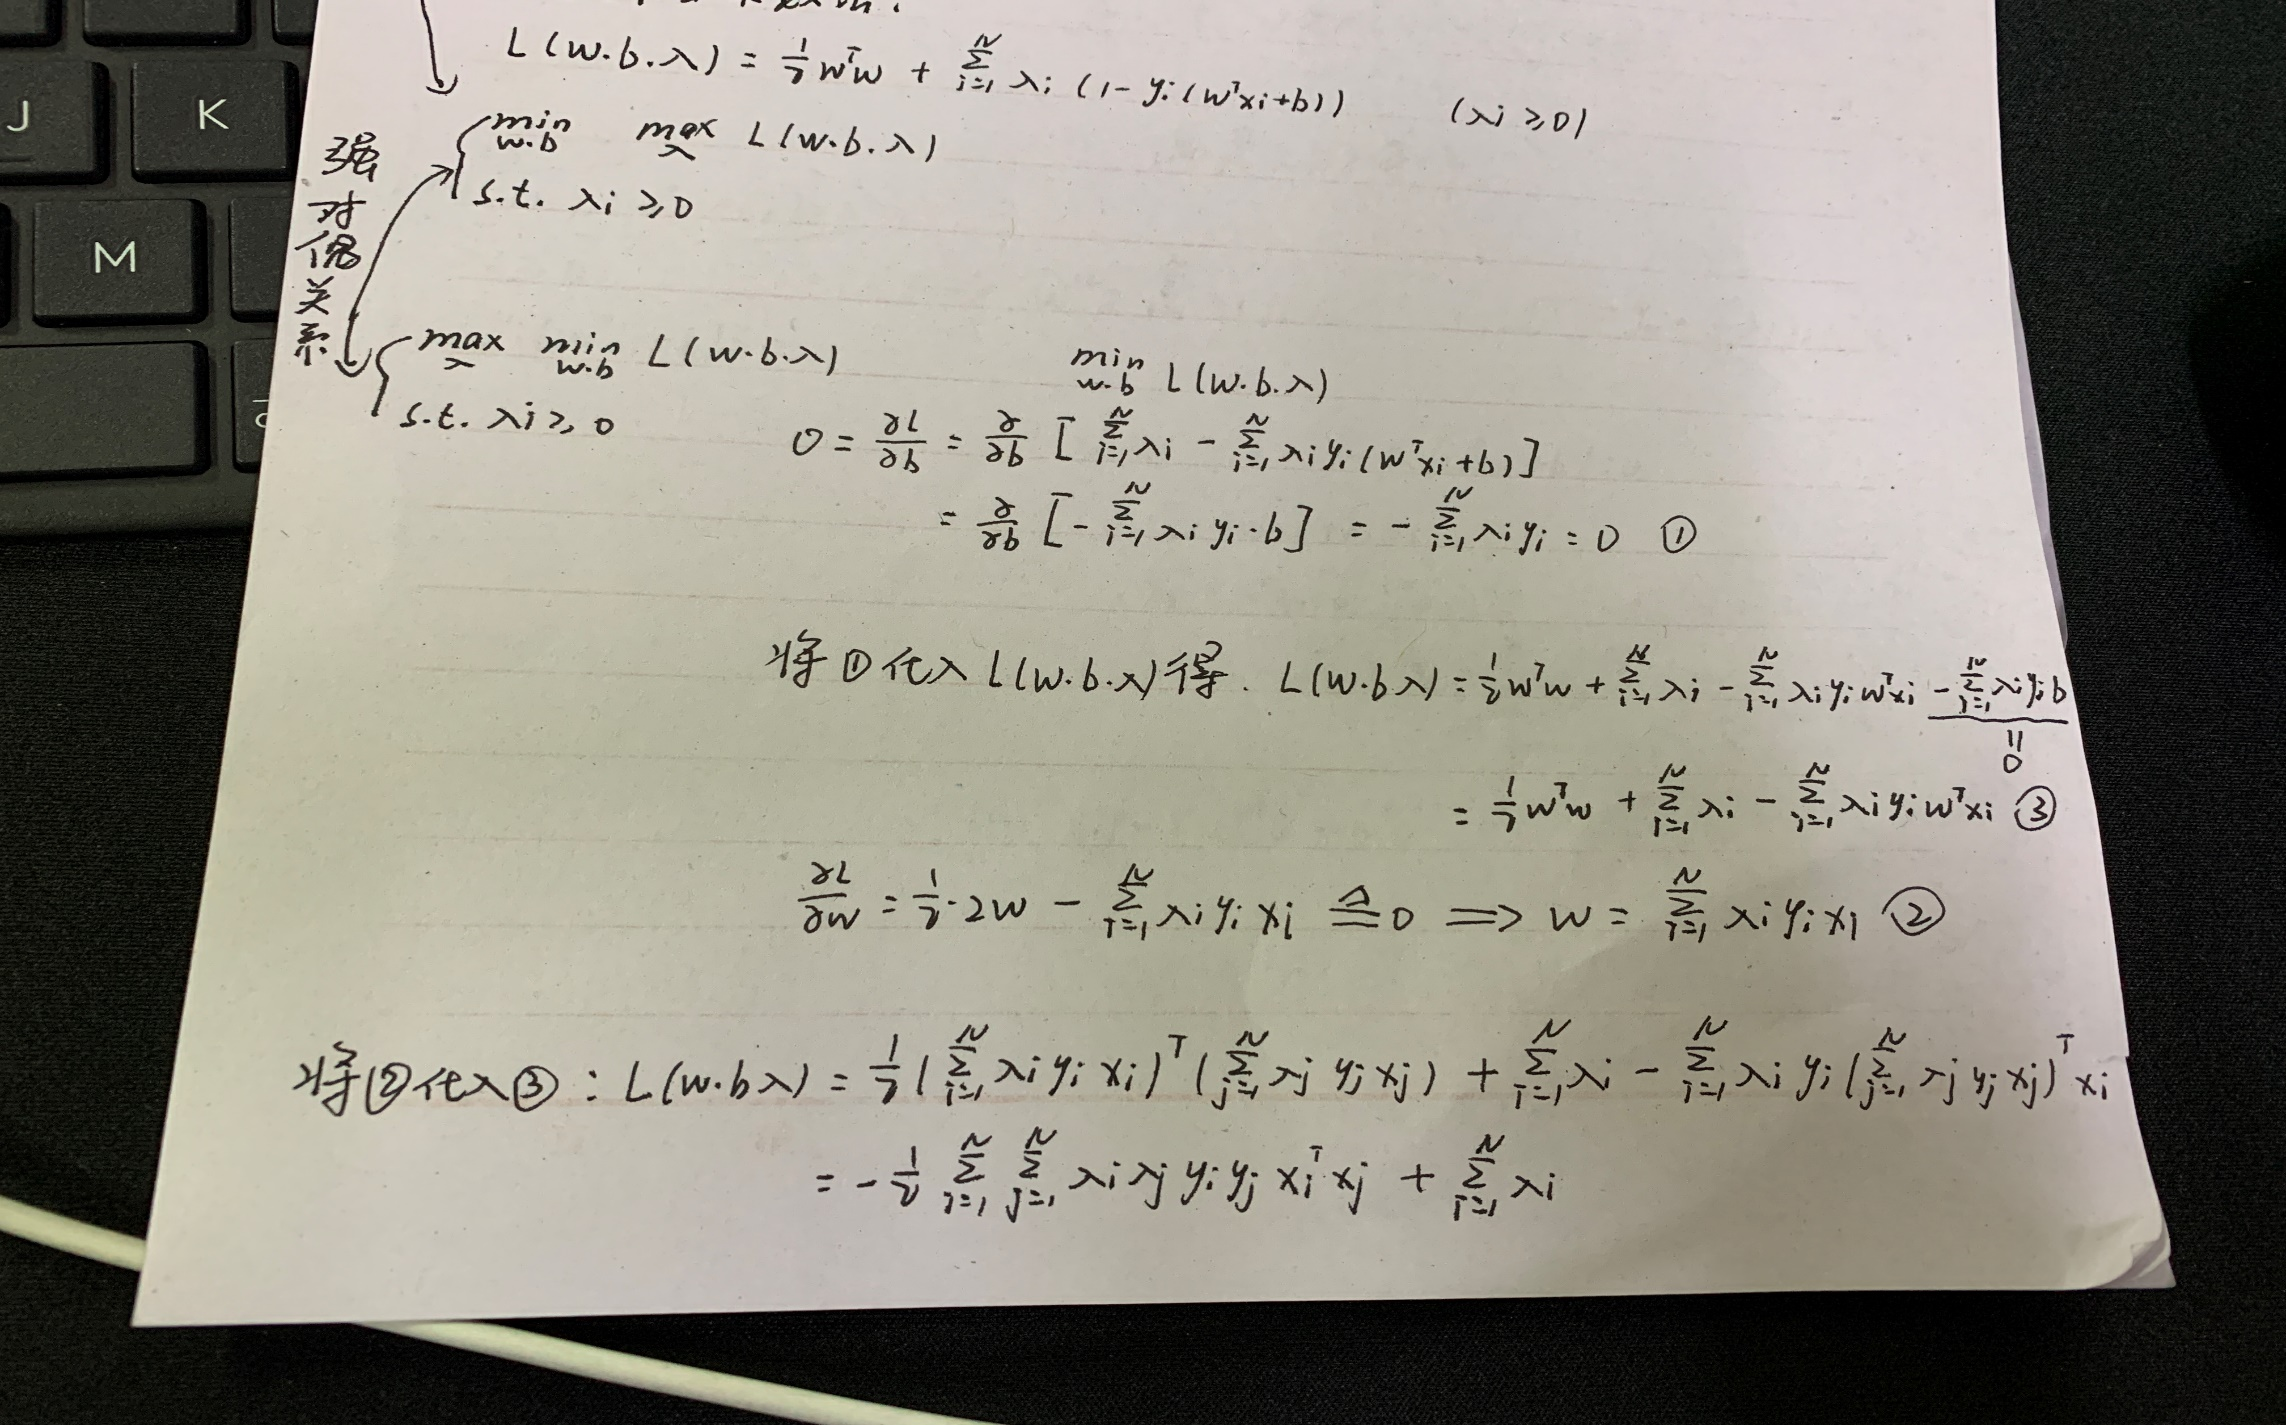 J K
M
L(w.b.λ) = 1/2 wᵀw + Σ_{i=1}^{N} λi (1- yi(wᵀxi+b)) (λi ≥0)
min_{w.b} max_{λ} L(w.b.λ)
s.t. λi ≥0
强对偶关系
max_{λ} min_{w.b} L(w.b.λ)
s.t. λi ≥ 0
min_{w.b} L(w.b.λ)
0 = ∂L/∂b = ∂/∂b [ Σ_{i=1}^{N} λi - Σ_{i=1}^{N} λi yi(wᵀxi+b) ]
= ∂/∂b [ - Σ_{i=1}^{N} λi yi·b ] = - Σ_{i=1}^{N} λi yi = 0 ①
将①代入L(w.b.λ)得. L(w.b λ) = 1/2 wᵀw + Σ_{i=1}^{N} λi - Σ_{i=1}^{N} λi yi wᵀxi - Σ_{i=1}^{N} λi yi b
=0
= 1/2 wᵀw + Σ_{i=1}^{N} λi - Σ_{i=1}^{N} λi yi wᵀxi ③
∂L/∂w = 1/2·2w - Σ_{i=1}^{N} λi yi xi ≜ 0 ⟹ w = Σ_{i=1}^{N} λi yi xi ②
将②代入③: L(w.b λ) = 1/2 (Σ_{i=1}^{N} λi yi xi)ᵀ (Σ_{j=1}^{N} λj yj xj) + Σ_{i=1}^{N} λi - Σ_{i=1}^{N} λi yi (Σ_{j=1}^{N} λj yj xj)ᵀ xi
= - 1/2 Σ_{i=1}^{N} Σ_{j=1}^{N} λi λj yi yj xiᵀ xj + Σ_{i=1}^{N} λi